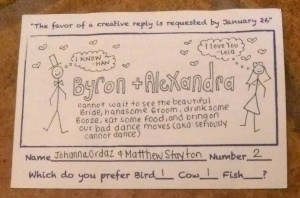 "The favor of a creative reply is requested by January 26"
I KNOW
-HAN
I love You
-Leia
Byron + Alexandra
cannot wait to see the beautiful
Bride, handsome Groom, drink some
Booze, eat some food, and bring on
our bad dance moves (aka seriously
cannot dance)
Name Johanna Ordaz & Matthew Stayton Number 2
Which do you prefer Bird 1 Cow 1 Fish ?